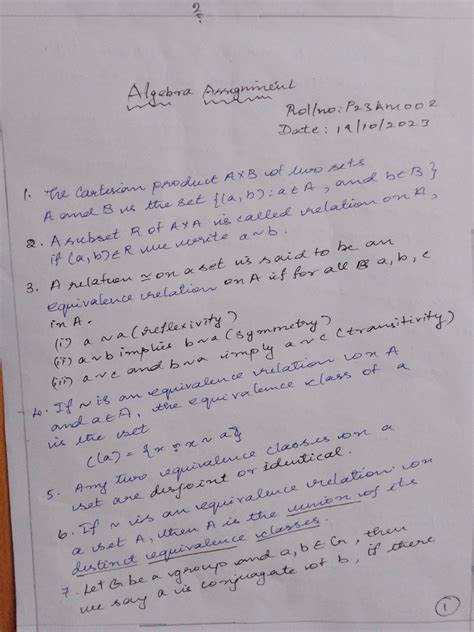 2
Algebra Assignment
Roll no: P23AM002
Date: 19/10/2023
1. The Cartesian product A×B of two sets
A and B is the set {(a,b): a∈A, and b∈B}
2. A subset R of A×A is called relation on A,
if (a,b)∈R we write a~b.
3. A relation ~ on a set is said to be an
equivalence relation on A if for all a, b, c
in A.
(i) a~a (reflexivity)
(ii) a~b implies b~a (symmetry)
(iii) a~c and b~a imply a~c (transitivity)
4. If ~ is an equivalence relation on A
and a∈A, the equivalence class of a
is the set
Cl(a) = {x : x~a}
5. Any two equivalence classes on a
set are disjoint or identical.
6. If ~ is an equivalence relation on
a set A, then A is the union of its
distinct equivalence classes.
7. Let G be a group and a,b∈G, then
we say a is conjugate of b, if there
1